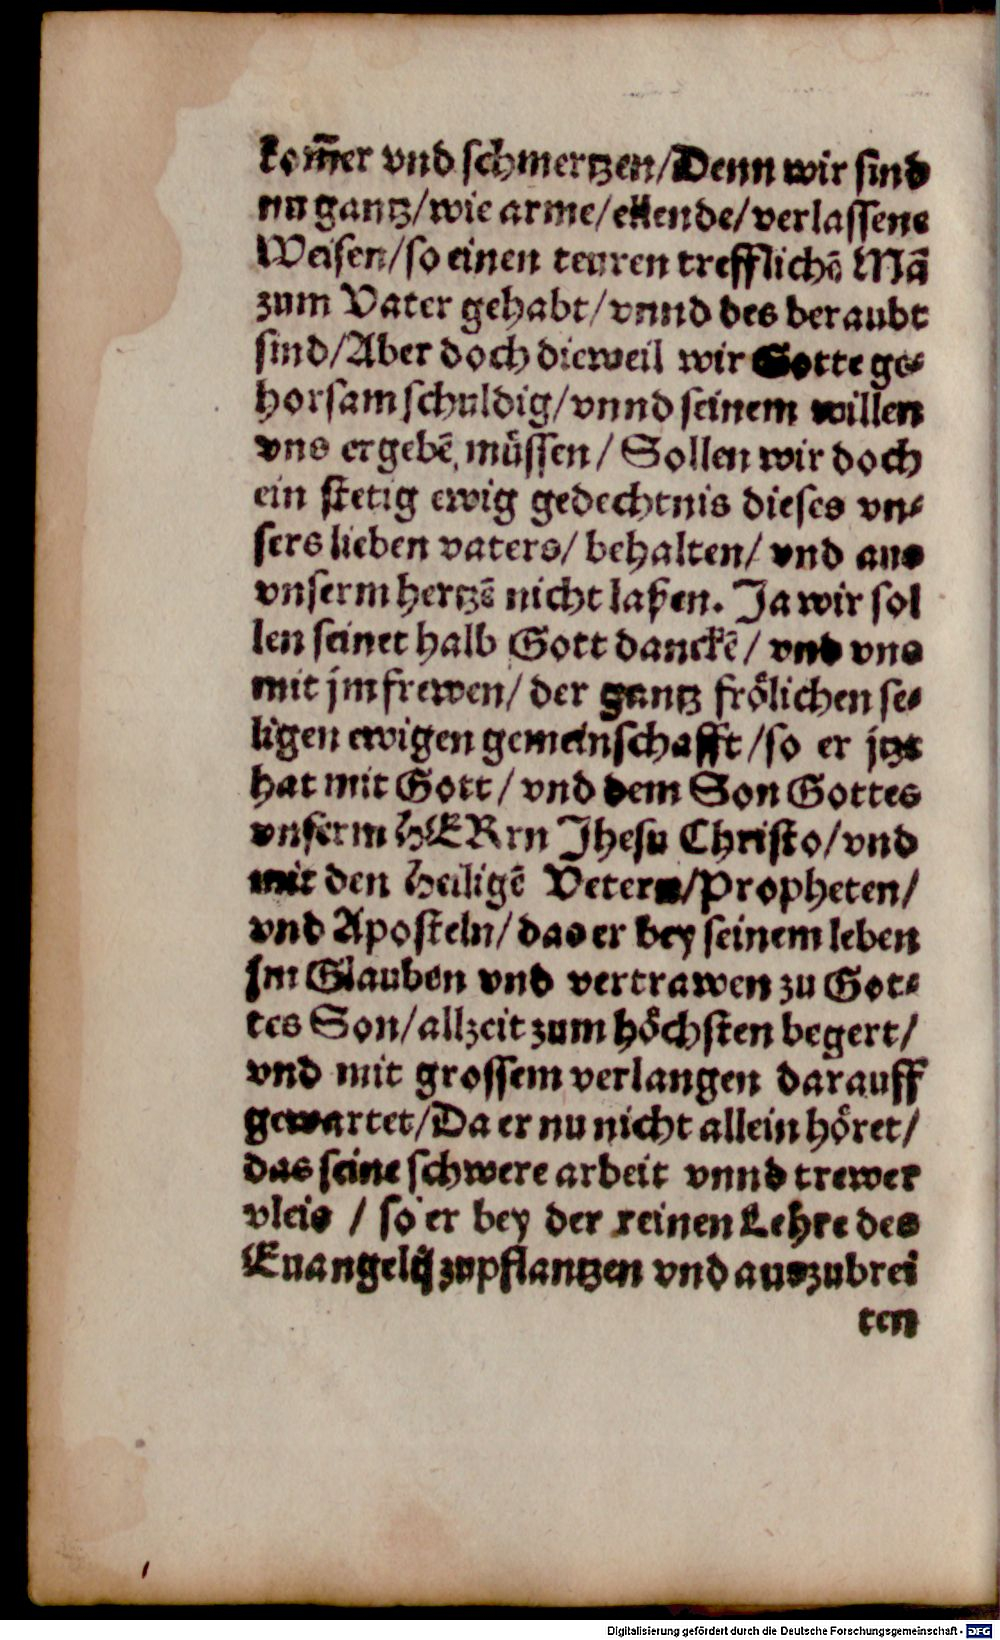 kom̅er vnd schmertzen/Denn wir sind
nu gantz/wie arme/ellende/verlassene
Weisen/so einen teuren trefflichē Mā
zum Vater gehabt/vnnd des beraubt
sind/Aber doch dieweil wir Gotte ge⸗
horsam schuldig/vnnd seinem willen
vns ergebē müssen/ Sollen wir doch
ein stetig ewig gedechtnis dieses vn⸗
sers lieben vaters/ behalten/ vnd aus
vnserm hertzē nicht laßen. Ja wir sol
len seinet halb Gott danckē/ vnd vns
mit jm frewen/ der gantz frölichen se⸗
ligen ewigen gemeinschafft/so er jtzt
hat mit Gott/ vnd dem Son Gottes
vnserm HERrn Jhesu Christo/vnd
mit den Heiligē Vetern/Propheten/
vnd Aposteln/das er bey seinem leben
jm Glauben vnd vertrawen zu Got⸗
tes Son/allzeit zum höchsten begert/
vnd mit grossem verlangen darauff
gewartet/Da er nu nicht allein höret/
das seine schwere arbeit vnnd trewer
vleis / so er bey der reinen Lehre des
Euangelij zupflantzen vnd auszubrei
ten
Digitalisierung gefördert durch die Deutsche Forschungsgemeinschaft - DFG